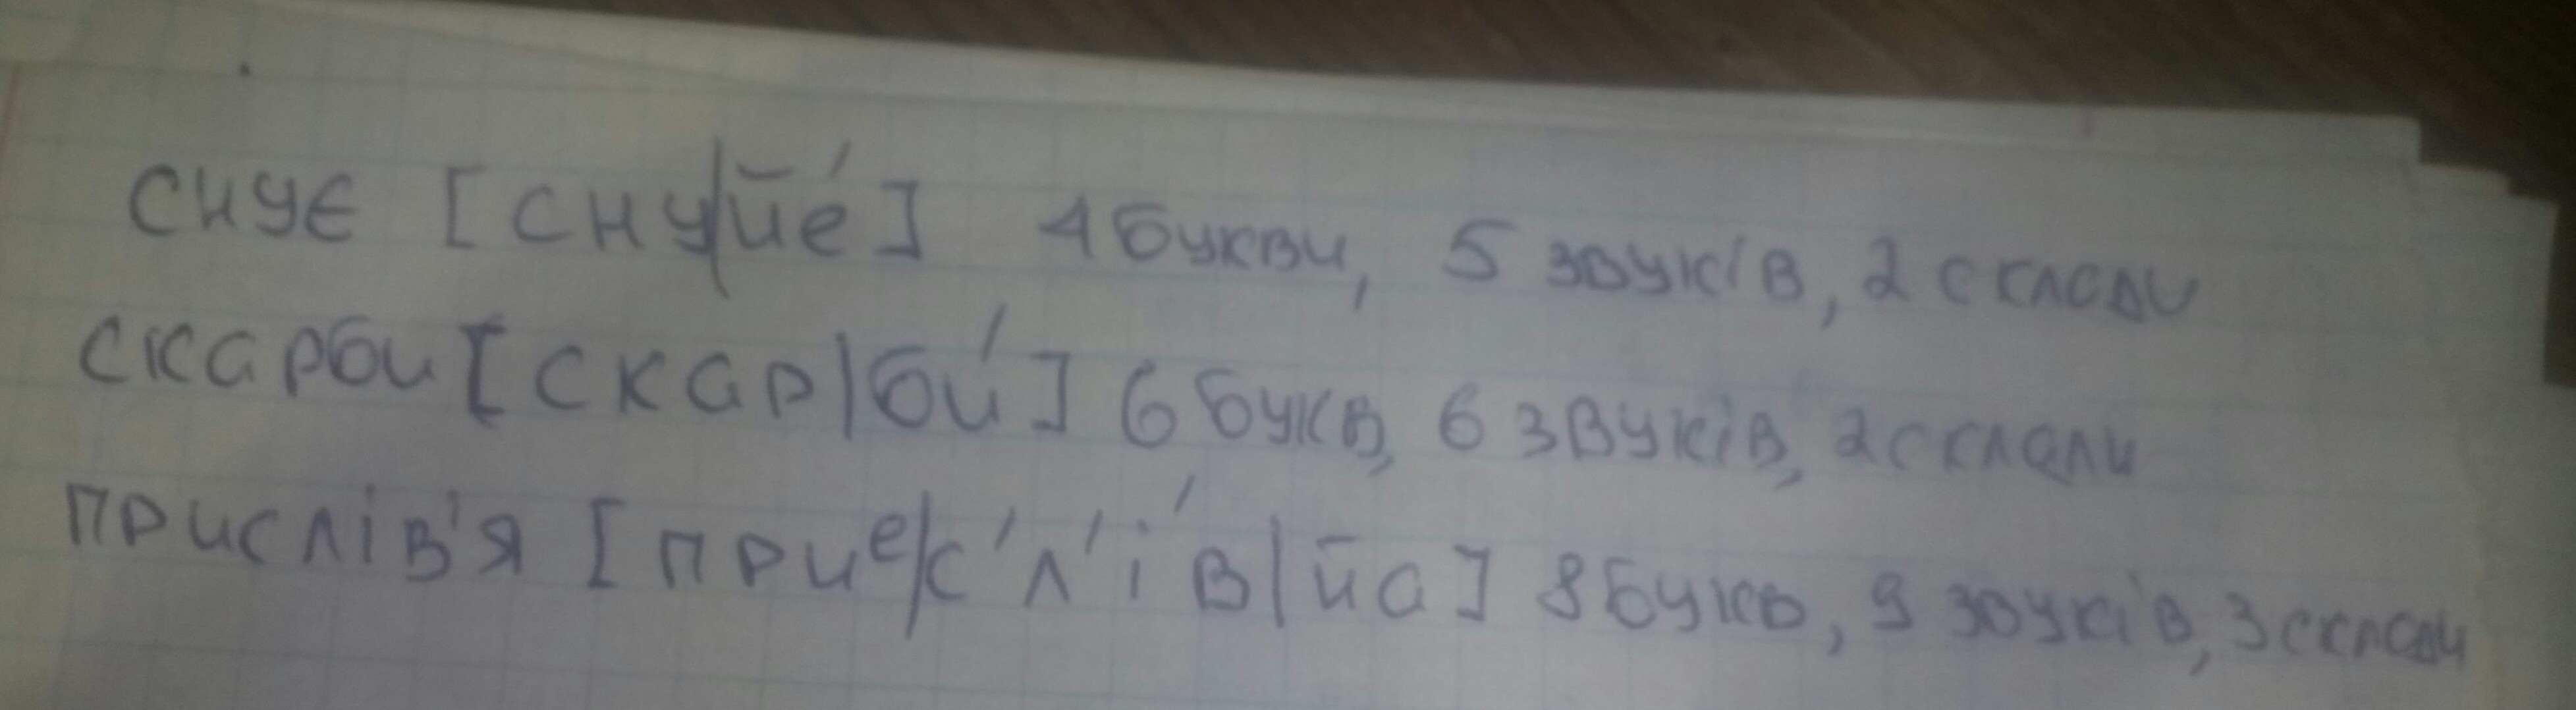 снує [сну|йе́] 4 букви, 5 звуків, 2 склади
скарби [скар|би́] 6 букв, 6 звуків, 2 склади
прислів'я [приᵉ|с'л'і́в|йа] 8 букв, 9 звуків, 3 склади